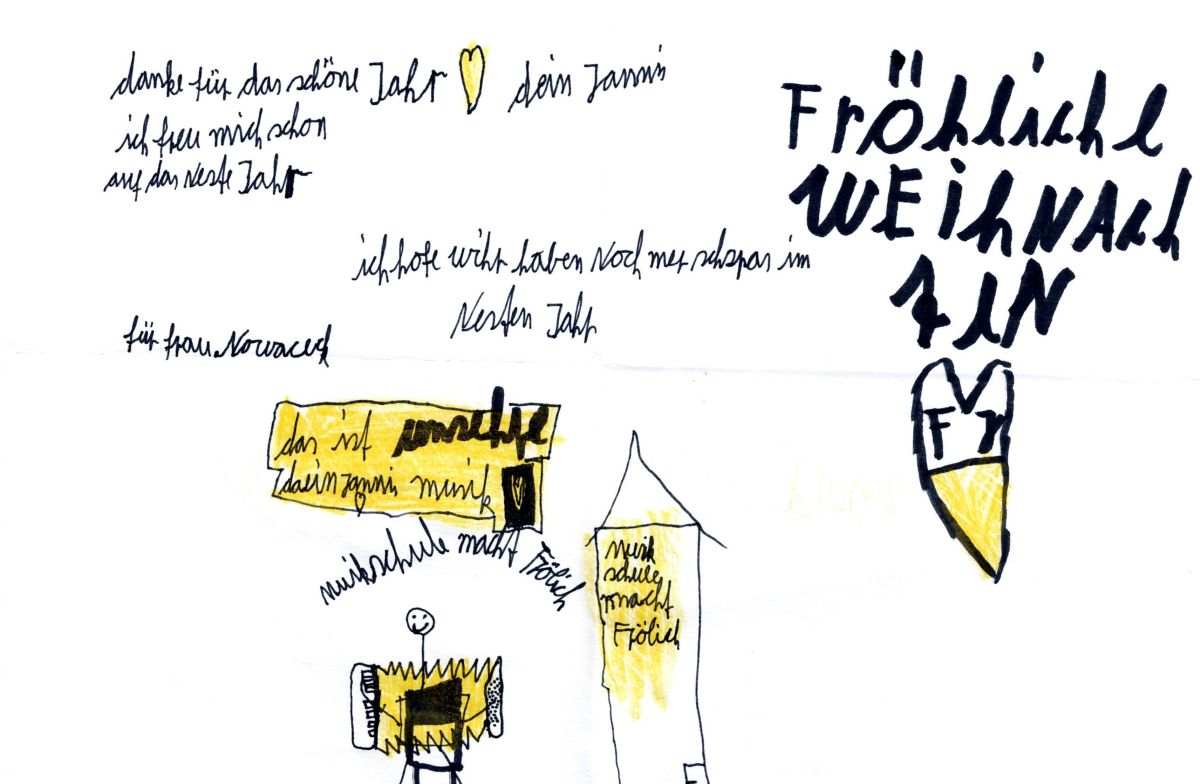 danke für das schöne Jahr dein Jannis
ich freu mich schon
auf das neste Jahr
ich hofe wihr haben Noch mer schspas im
Nesten Jahr
für frau Nowaceck
FröhlichE
WEihNAch
tEN
Fr
das ist unsehre
daein jannis musik
muikschule macht Frölich
musik
schule
macht
Frölich